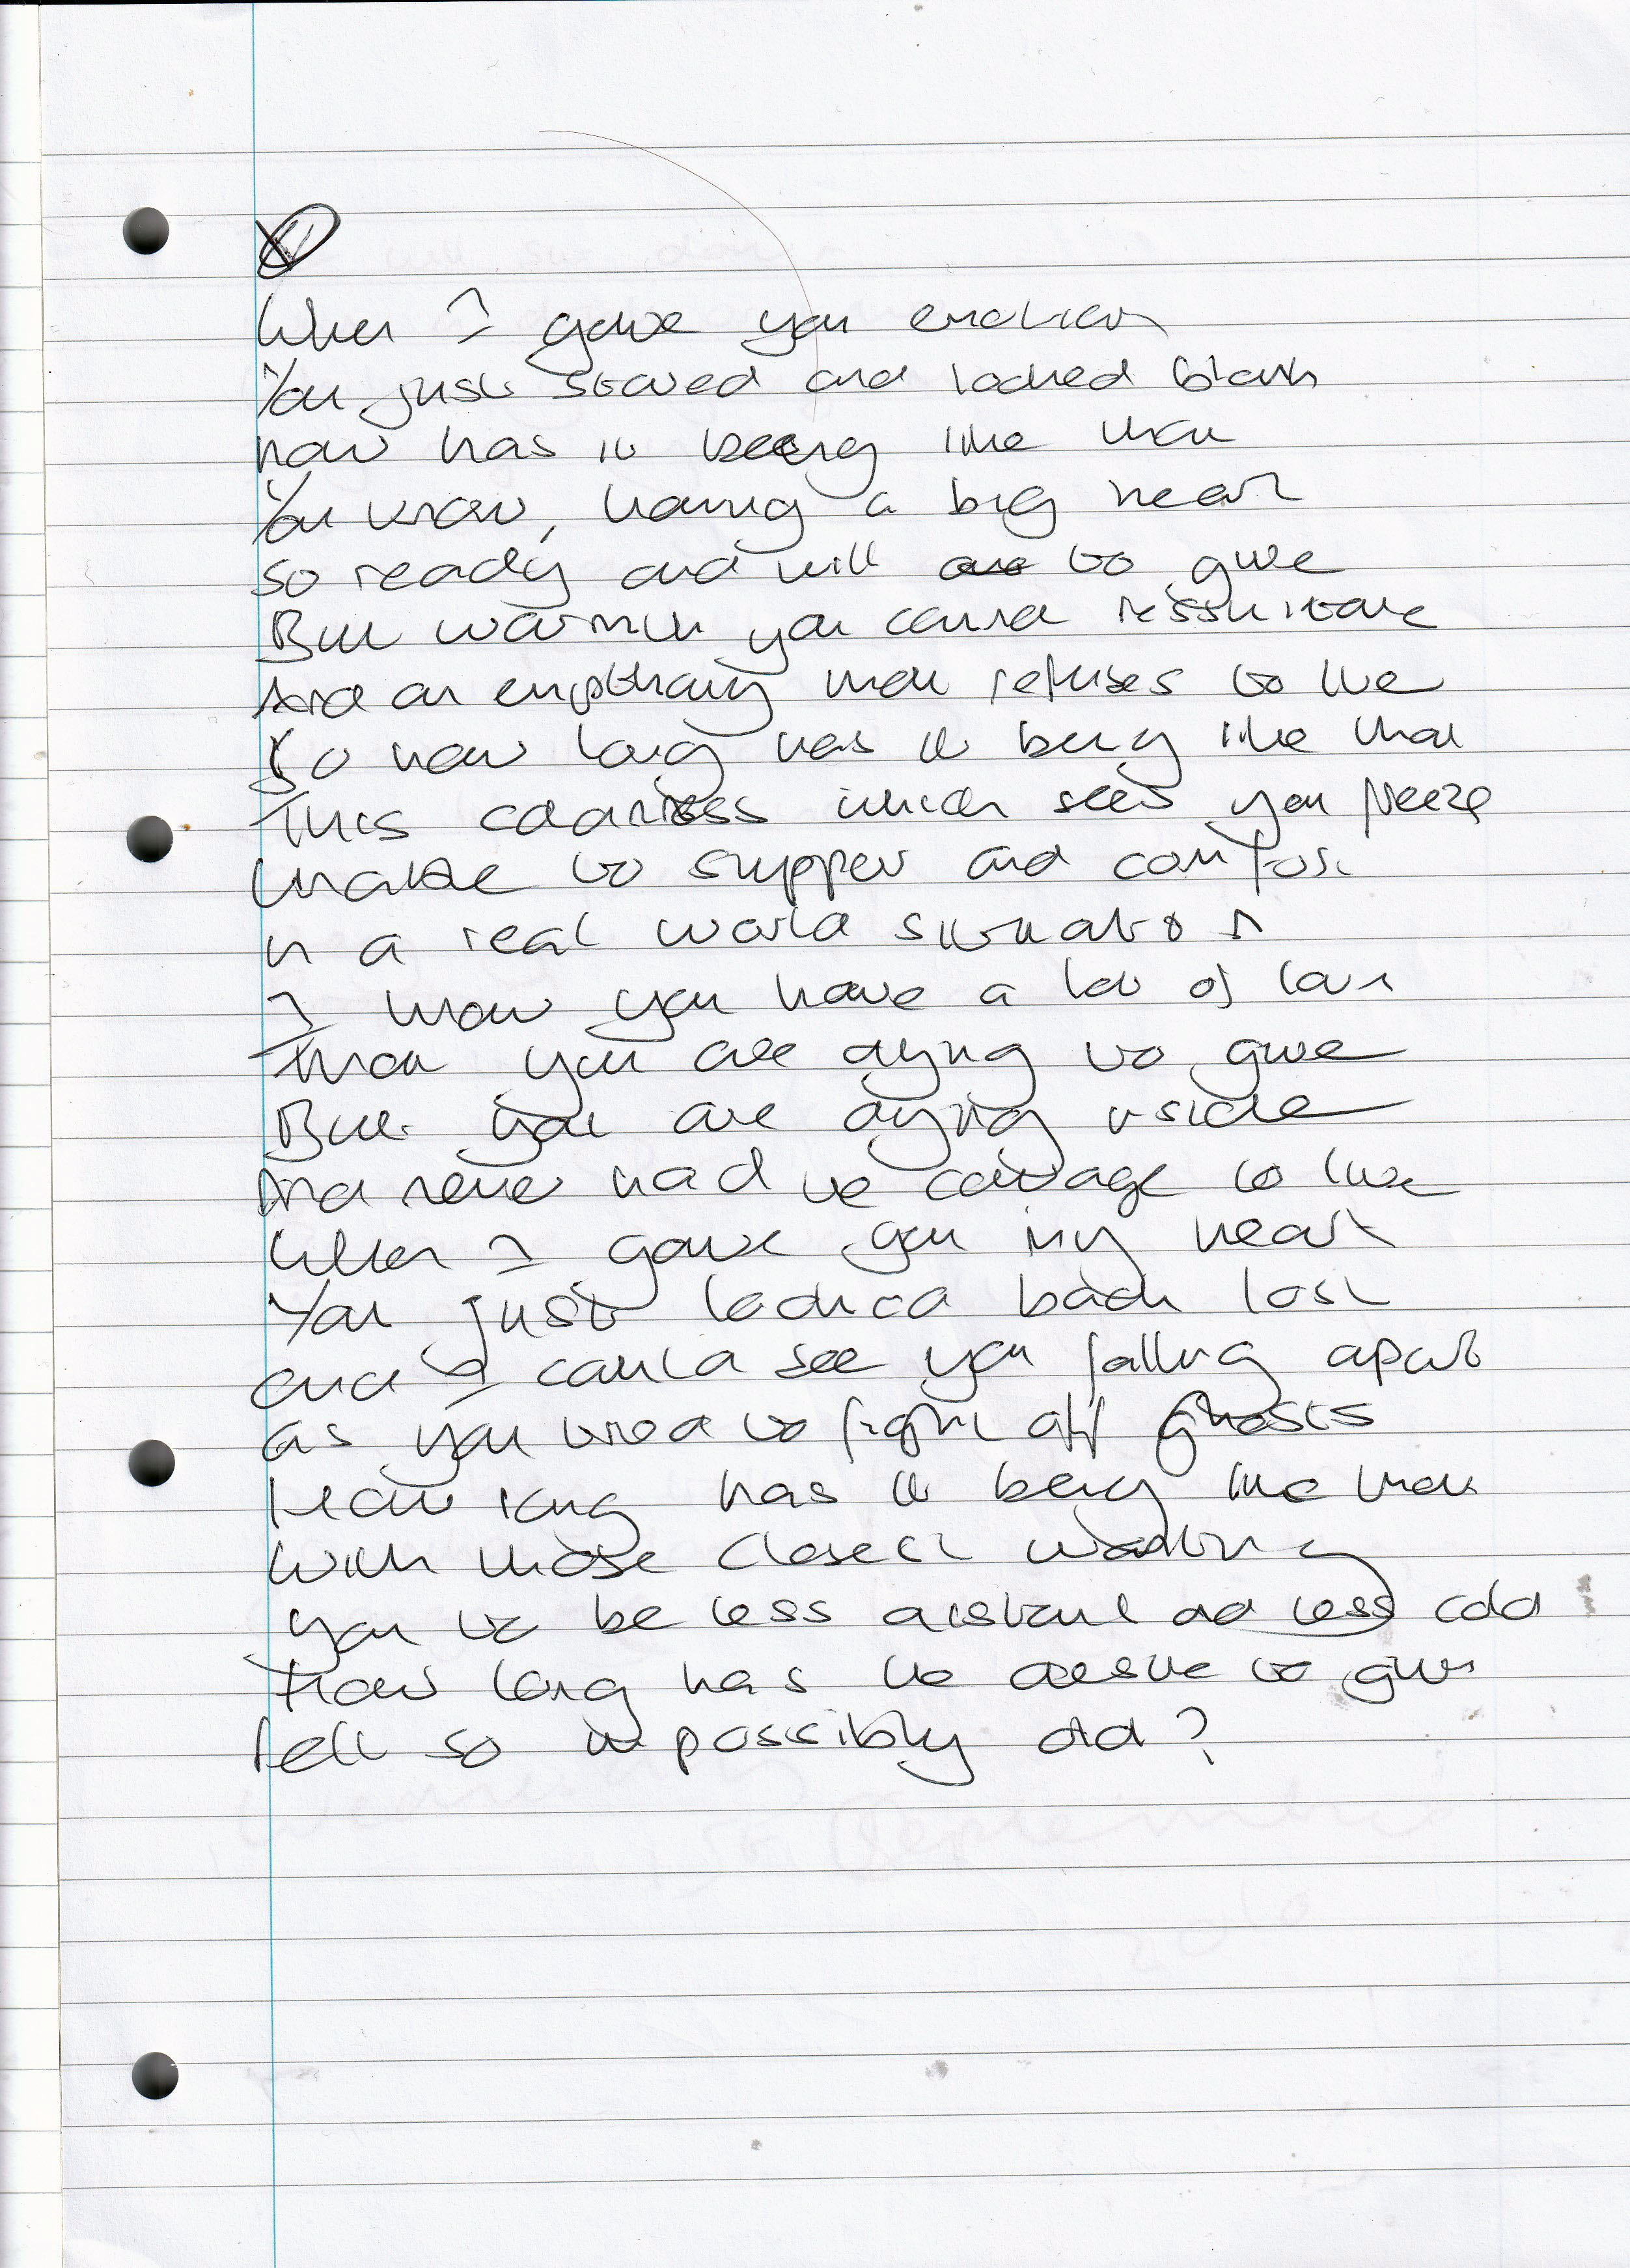 When I gave you emotion
You just stared and looked blank
how has it being like that
You know, having a big heart
so ready and will to give
But warmth you cannot resusitate
And an empthaty that refuses to live
So how long has it being like that
This coldness which sees you freeze
Unable to support and comfort
in a real world situation
I know you have a lot of love
That you are dying to give
But you are dying inside
And never had the courage to live
When I gave you my heart
You just looked back lost
and I could see you falling apart
as you tried to fight off ghosts
How long has it being like that
With those closest wanting
you to be less distant and less cold
How long has the desire to give
felt so impossibly old?